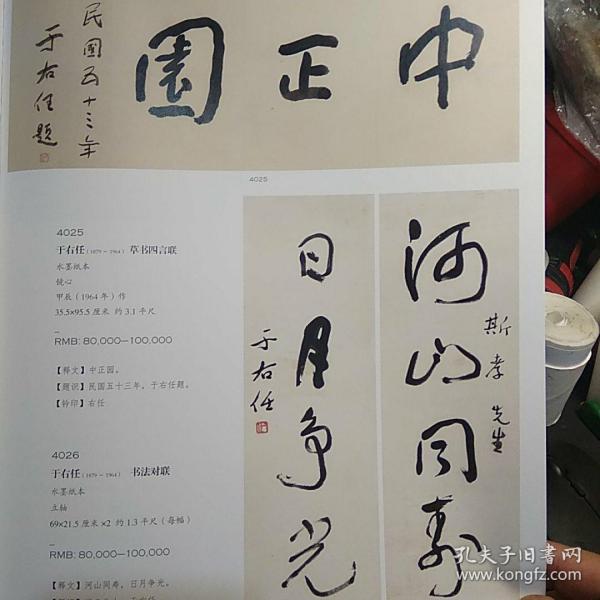 中正園
民國五十三年
于右任題
4025
4025
于右任(1879-1964) 草书四言联
水墨纸本
镜心
甲辰(1964年)作
35.5×95.5 厘米 约 3.1 平尺
RMB: 80,000—100,000
【释文】中正园。
【题识】民国五十三年，于右任题。
【钤印】右任
4026
于右任(1879-1964) 书法对联
水墨纸本
立轴
69×21.5 厘米 ×2 约 1.3 平尺（每幅）
RMB: 80,000—100,000
【释文】河山同寿，日月争光。
河山同壽
斯孝先生
日月争光
于右任
孔夫子旧书网
www.kongfz.com